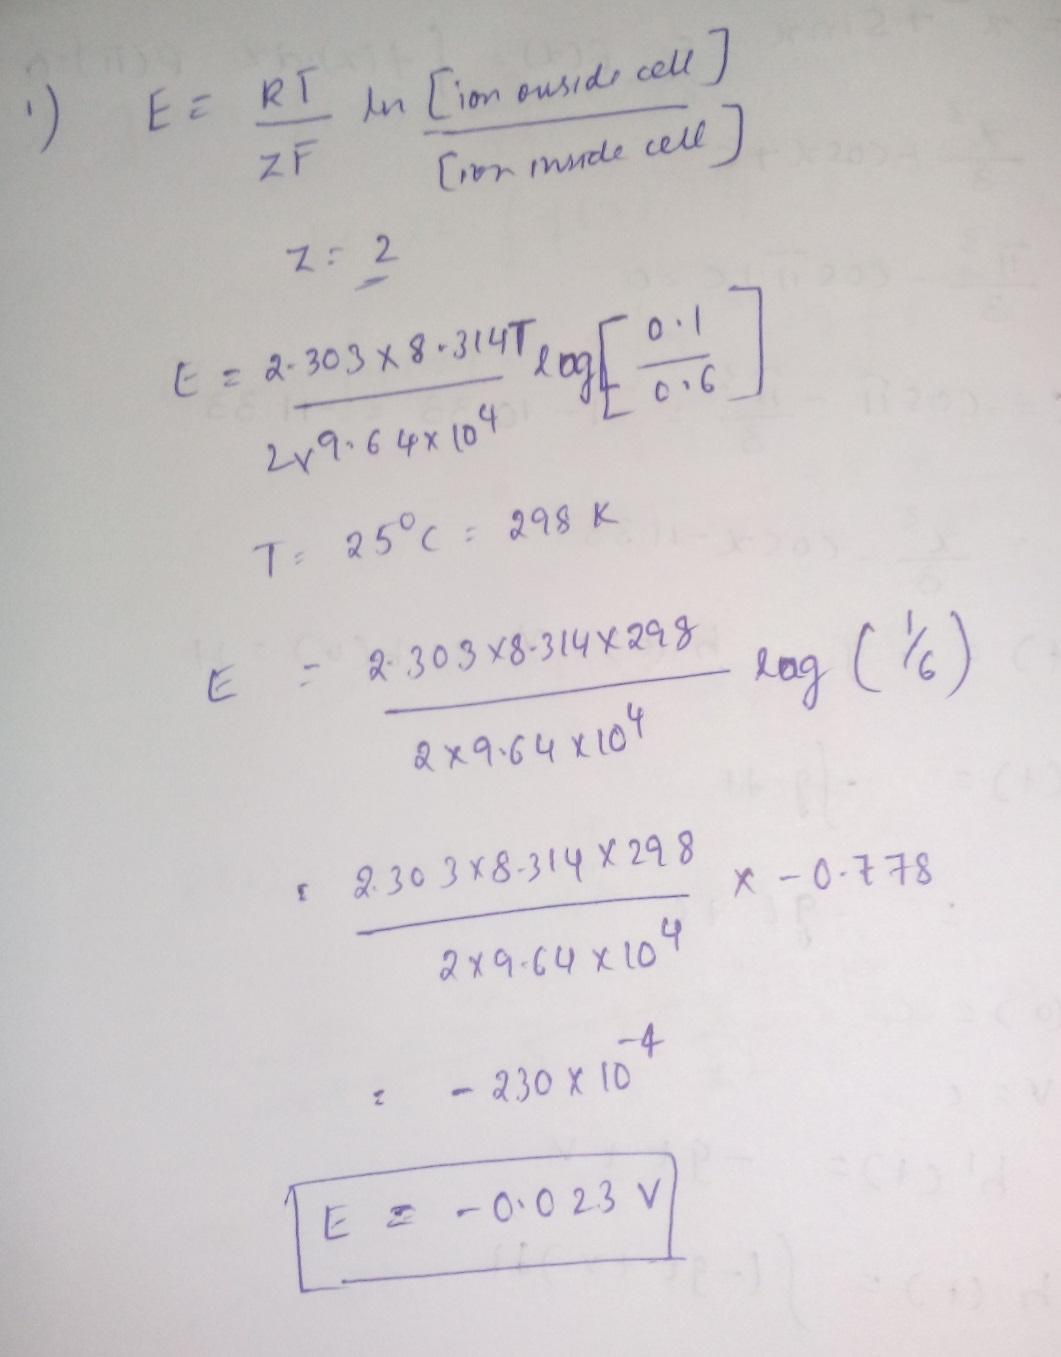 1) E = RT / ZF ln [ion ouside cell] / [ion inside cell]
Z = 2
E = 2.303 x 8.314T / 2x9.64x10^4 log [0.1 / 0.6]
T = 25°C = 298 K
E = 2.303 x8.314 x 298 / 2 x 9.64 x 10^4 log (1/6)
= 2.303 x 8.314 x 298 / 2 x 9.64 x 10^4 x - 0.778
= - 230 x 10^-4
E = -0.023 V